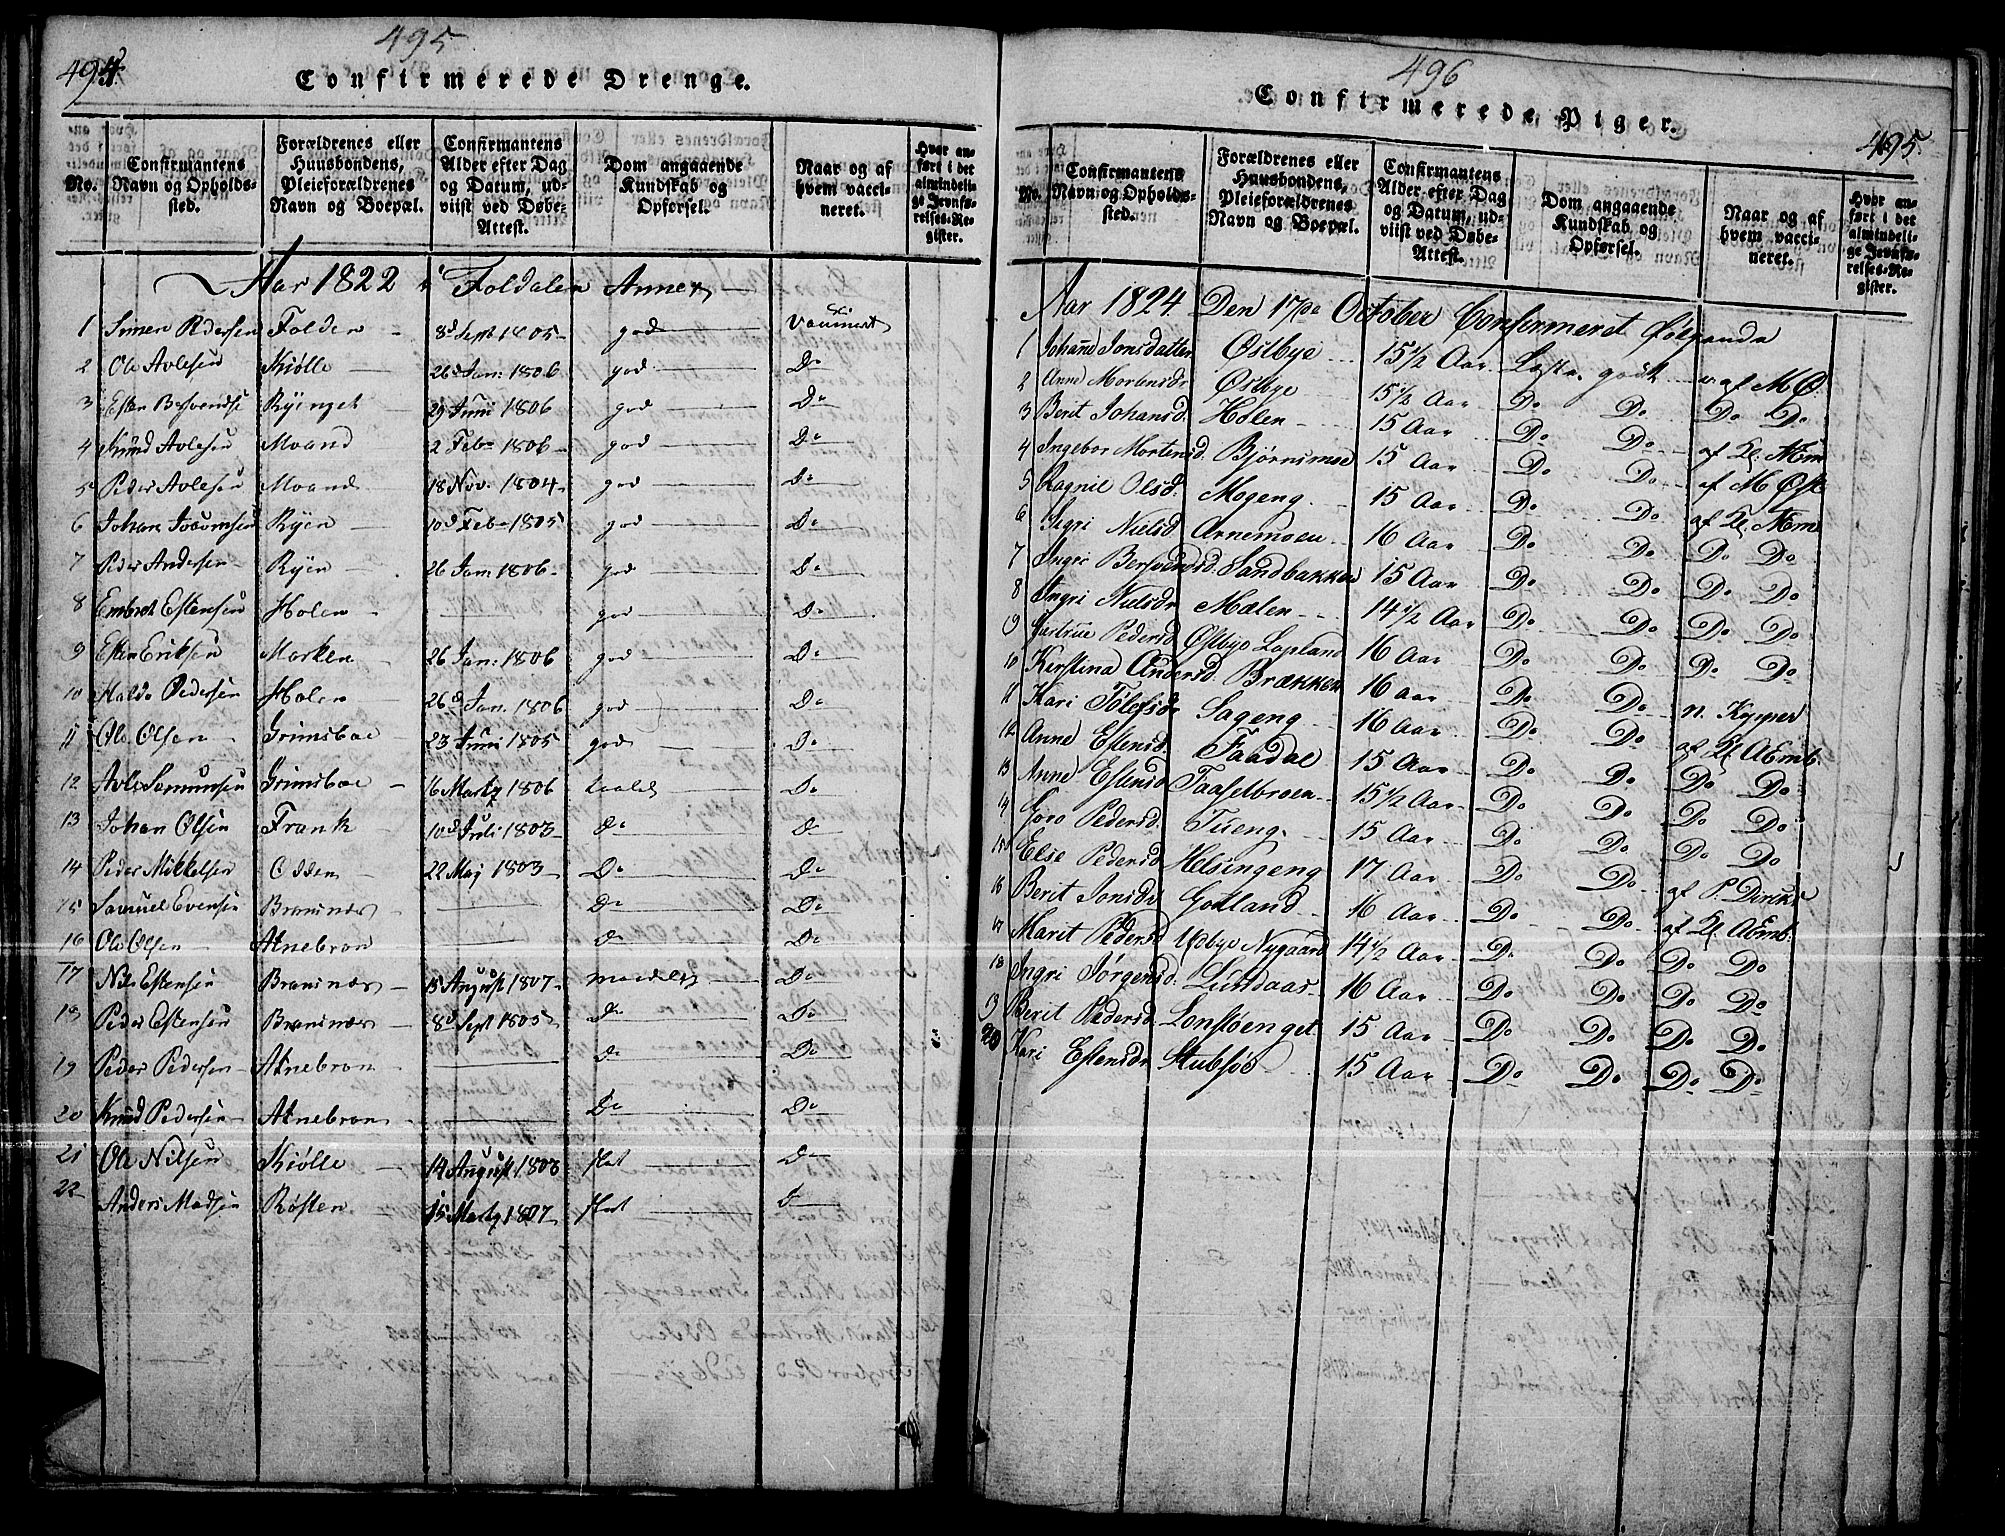 494. 495
Confirmerede Drenge.
No. Confirmantens Navn og Opholdssted. Forældrenes eller Huusbondens, Pleieforældrenes Navn og Boepæl. Confirmantens Alder efter Dag og Datum, udviist ved Døbe-Attest. Dom angaaende Kundskab og Opførsel. Naar og af hvem vaccineret. Hvor anført i det almindelige Jevnførelses-Register.
Aar 1822 i Foldalen Annex
1 Simen Pedersen Folden 8d Sept 1805 god Vaccinert
2 Ole Avlesen Kiølle 26d Jan: 1806 god Do
3 Esten Ryinget 29 Juni 1806 god Do
4 Knud Avlesen Moand 2 Feb 1806 god Do
5 Peder Avlesen Moand 18 Nov. 1804 god Do
6 Johan Ryen 10d Feb 1805 god Do
7 Peder Andersen Ryen 26 Jan 1806 god Do
8 Embret Estensen Holen god Do
9 Esten Eriksen Morken 26 Jan: 1806 god Do
10 Haldo Pedersen Holen 26d Jan. 1806 god Do
11 Ole Olsen Grimsboe 23 Juni 1805 god Do
12 Avle Samunsen Grimsboe 16 Martz 1806 Do
13 Johan Olsen Frank 10d Juli 1803 Do Do
14 Peder Mikkelsen Odden 22 Maj 1803 Do Do
15 Samuel Evensen Bransnæs Do Do
16 Ole Olsen Atnebron Do Do
17 Nils Estensen Bransnæs 15 August 1807 maadelig Do
18 Peder Estensen Bransnæs 8d Sept 1805 Do Do
19 Peder Pedersen Atnebron Do Do
20 Knud Pedersen Atnebron Do Do
21 Ole Nilsen Kiølle 14 August 1803 slet Do
22 Anders Madsen Røsten 15 Martz 1807 slet D
496 495.
Confirmerede Piger.
No. Confirmantens Navn og Opholdssted. Forældrenes eller Huusbondens, Pleieforældrenes Navn og Boepæl. Confirmantens Alder efter Dag og Datum, udviist ved Døbe-Attest. Dom angaaende Kundskab og Opførsel. Naar og af hvem vaccineret. Hvor anført i det almindelige Jevnførelses-Register.
Aar 1824 Den 17de October Confirmeret Følgende
1 Johanne Jonsdatter Østbye 15 1/2 Aar Læste godt v af M Ø.
2 Anne Mortensdr Østbye 15 1/2 Aar Do Do Do Do
3 Berit Johansd. Holen 15 Aar Do Do af Kl. Æm
4 Ingebor Mortensd. Bjørnsmoe 15 Aar Do Do af M Øst
5 Ragnil Olsd. Mogeng 15 Aar Do Do af Kl. Æm
6 Ingri Nielsd Arnemoen 16 Aar Do Do Do Do
7 Ingri Bersvensd. Sandbakken 15 Aar Do Do Do Do
8 Ingri Nielsdr Mælen 14 1/2 Aar Do Do Do Do
9 Giertrue Pedersd Østbye Lapland 16 Aar Do Do Do Do
10 Kirstina Andersd. Brækken 16 aar Do Do n. Kypper
11 Kari Tolefsdr Sageng 16 Aar Do Do af Kl. Æmb.
12 Anne Estensd. Faadal 15 Aar Do Do Do Do
13 Anne Estensd Faaselbroen 15 1/2 Aar Do Do Do Do
14 Goro Pedersd. Tueng 15 Aar Do Do Do Do
15 Else Pedersd Helsingeng 17 Aar Do Do af P. Dircks
16 Berit Jonsdr Gotland 16 Aar Do Do af Kl Æmb.
17 Marit Pedersd Udbye Nygaard 14 1/2 Aar Do Do Do Do
18 Ingri Jørgensd. Lundaas 16 Aar Do Do Do Do
19 Berit Pedersd. Lonstøenget 15 Aar Do Do Do Do
20 Kari Estensdr Stubsøe 15 Aar Do Do Do Do